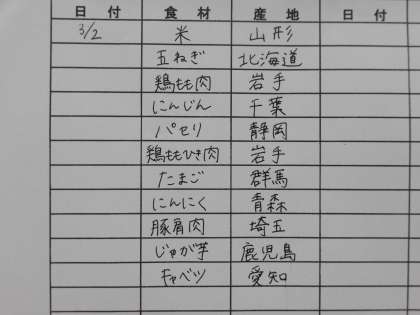 日付 食材 産地 日付
3/2 米 山形
玉ねぎ 北海道
鶏もも肉 岩手
にんじん 千葉
パセリ 静岡
鶏ももひき肉 岩手
たまご 群馬
にんにく 青森
豚肩肉 埼玉
じゃが芋 鹿児島
キャベツ 愛知